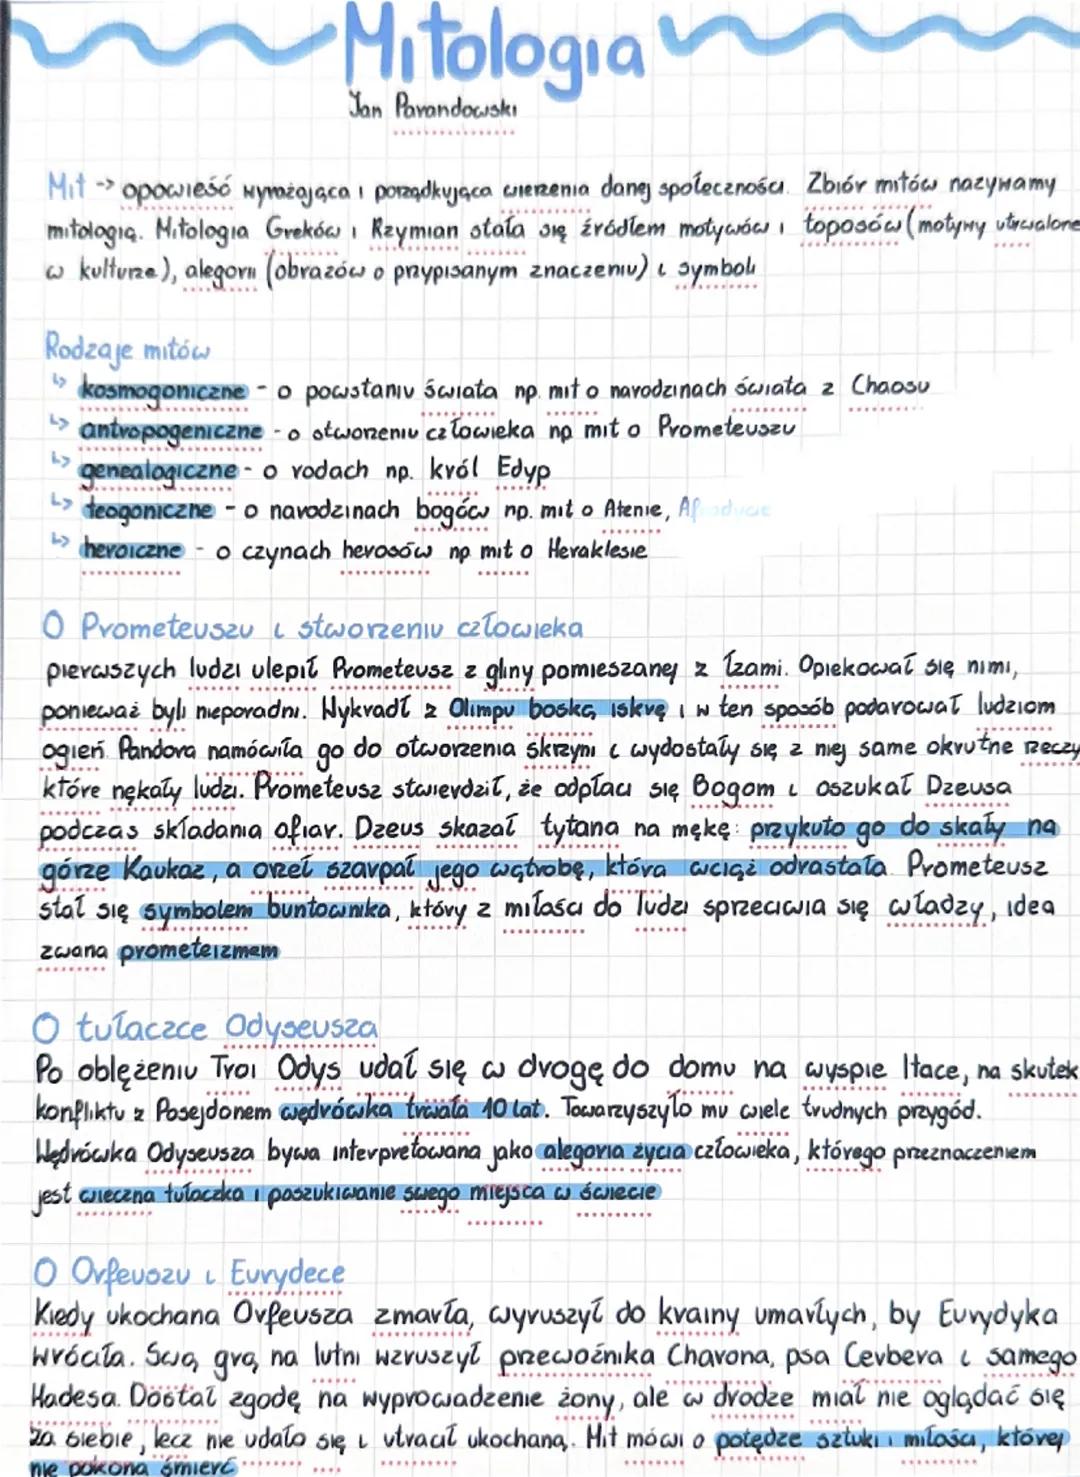 Mitologia
Jan Parandowski
Mit -> opowieść wyrażająca i porządkująca wierzenia danej społeczności. Zbiór mitów nazywamy
mitologią. Mitologia Greków i Rzymian stała się źródłem motywów i toposów (motywy utrwalone
w kulturze), alegorii (obrazów o przypisanym znaczeniu) i symboli
Rodzaje mitów
↳ kosmogoniczne - o powstaniu świata np. mit o narodzinach świata z Chaosu
↳ antropogeniczne - o stworzeniu człowieka np mit o Prometeuszu
↳ genealogiczne - o rodach np. król Edyp
↳ teogoniczne - o narodzinach bogów np. mit o Atenie, Afrodycie
↳ heroiczne - o czynach herosów np mit o Heraklesie
O Prometeuszu i stworzeniu człowieka
pierwszych ludzi ulepił Prometeusz z gliny pomieszanej z łzami. Opiekował się nimi,
ponieważ byli nieporadni. Wykradł z Olimpu boską iskrę i w ten sposób podarował ludziom
ogień. Pandora namówiła go do otworzenia skrzyni i wydostały się z niej same okrutne rzeczy
które nękały ludzi. Prometeusz stwierdził, że odpłaci się Bogom i oszukał Dzeusa
podczas składania ofiar. Dzeus skazał tytana na mękę: przykuto go do skały na
górze Kaukaz, a orzeł szarpał jego wątrobę, która wciąż odrastała. Prometeusz
stał się symbolem buntownika, który z miłości do ludzi sprzeciwia się władzy, idea
zwana prometeizmem
O tułaczce Odyseusza
Po oblężeniu Troi Odys udał się w drogę do domu na wyspie Itace, na skutek
konfliktu z Posejdonem wędrówka trwała 10 lat. Towarzyszyło mu wiele trudnych przygód.
Wędrówka Odyseusza bywa interpretowana jako alegoria życia człowieka, którego przeznaczeniem
jest wieczna tułaczka i poszukiwanie swego miejsca w świecie
O Orfeuszu i Eurydece
Kiedy ukochana Orfeusza zmarła, wyruszył do krainy umarłych, by Eurydyka
wróciła. Swą grą na lutni wzruszył przewoźnika Charona, psa Cerbera i samego
Hadesa. Dostał zgodę na wyprowadzenie żony, ale w drodze miał nie oglądać się
za siebie, lecz nie udało się i utracił ukochaną. Mit mówi o potędze sztuki i miłości, której
nie pokona śmierć